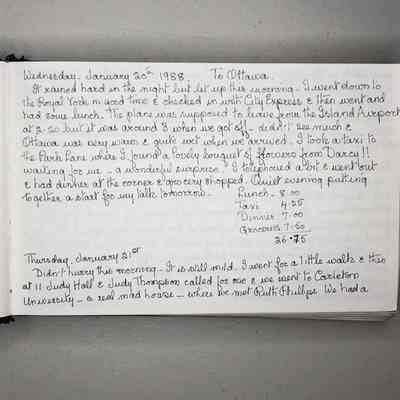 Wednesday, January 20th 1988. To Ottawa.
It rained hard in the night but let up this morning - I went down to
the Royal York in good time & checked in with City Express & then went and
had some lunch. The plane was supposed to leave from the Island Airport
at 2.20 but it was around 3 when we got off - didn't see much &
Ottawa was very warm & quite wet when we arrived. I took a taxi to
the Park Lane where I found a lovely bouquet of flowers from Darcy!!
waiting for me - a wonderful surprise. I telephoned a bit & went out
& had dinner at the corner & grocery shopped. Quiet evening putting
together a start for my talk tomorrow. Lunch 8.00
Taxi 4.25
Dinner 7.00
Groceries 7.50
26.75
Thursday, January 21st
Didn't hurry this morning - It is still mild. I went for a little walk & then
at 11 Judy Hall & Judy Thompson called for me & we went to Carleton
University - a real mad house - where we met Ruth Phillips. We had a